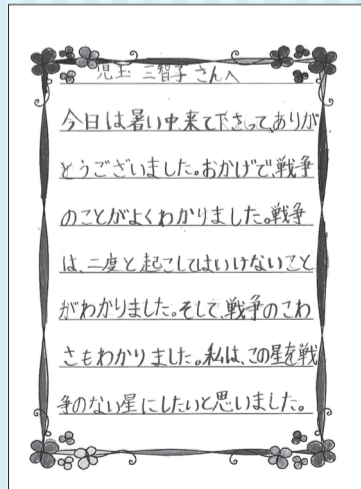 児玉 三智子 さんへ
今日は暑い中来て下さって、ありが
とうございました。おかげで、戦争
のことがよくわかりました。戦争
は、二度と起こしてはいけないこと
がわかりました。そして、戦争のこわ
さもわかりました。私は、この星を戦
争のない星にしたいと思いました。